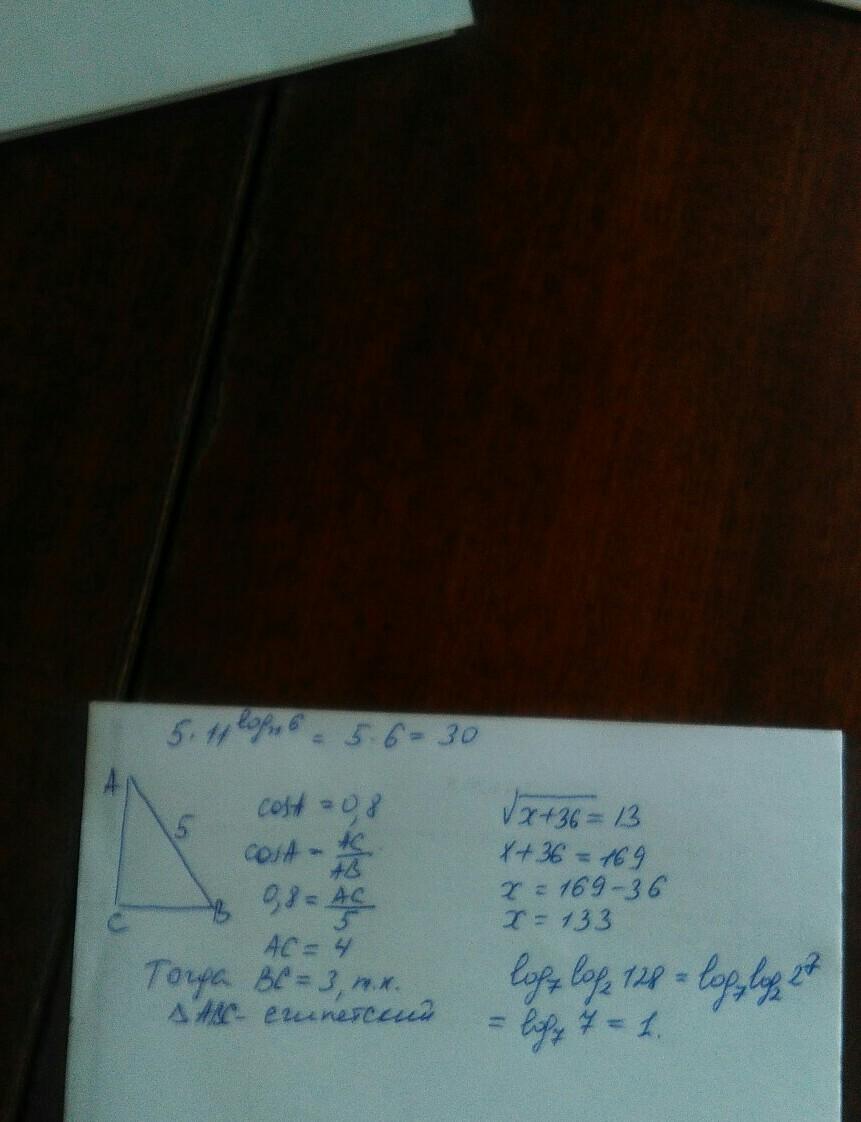 5·11^log₁₁6 = 5·6 = 30
A
5
C
B
cosA = 0,8
cosA = AC/AB
0,8 = AC/5
AC = 4
Тогда BC = 3, т.к.
△ABC - египетский
√(x+36) = 13
x+36 = 169
x = 169-36
x = 133
log₇ log₂ 128 = log₇ log₂ 2⁷
= log₇ 7 = 1.